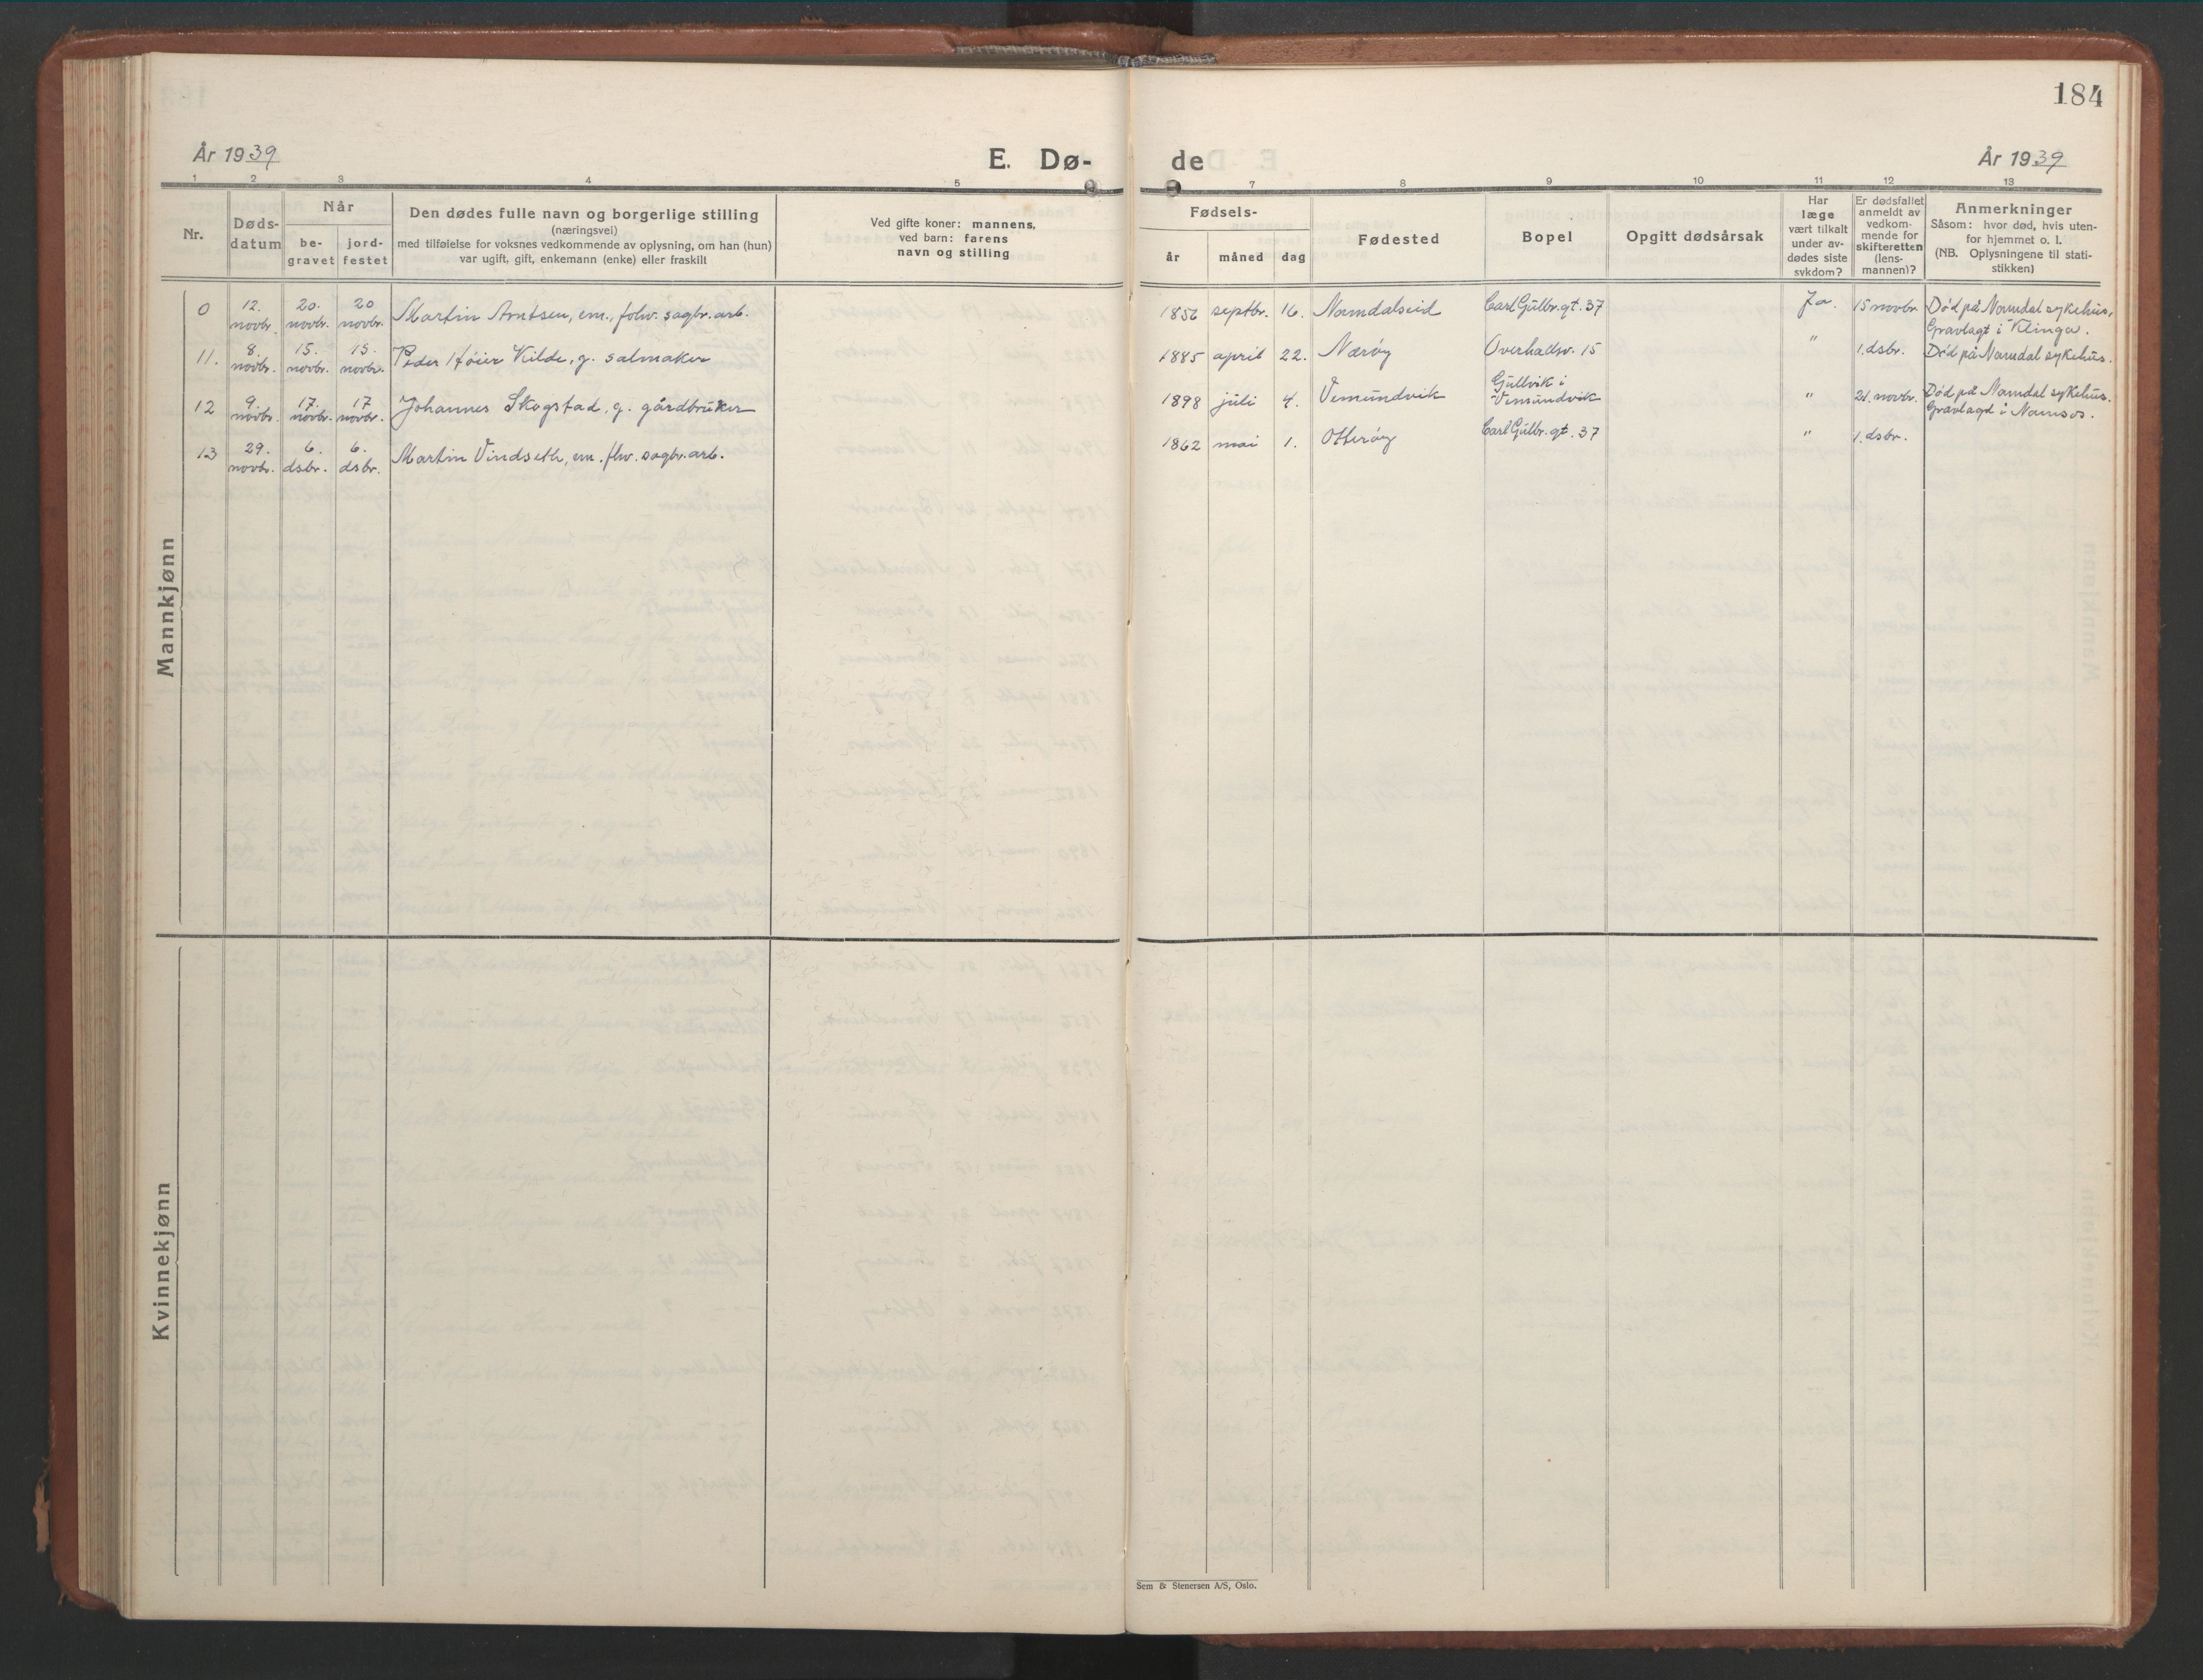 184
År 1939
E. Dø-
de
År 1939
1 2 3 4 5
7 8 9 10 11 12 13
Nr.
Døds-
datum
Når
be-
gravet
jord-
festet
Den dødes fulle navn og borgerlige stilling
(næringsvei)
med tilføielse for voksnes vedkommende av oplysning, om han (hun)
var ugift, gift, enkemann (enke) eller fraskilt
Ved gifte koner: mannens,
ved barn: farens
navn og stilling
Fødsels-
år måned dag
Fødested
Bopel
Opgitt dødsårsak
Har
læge
vært tilkalt
under av-
dødes siste
sykdom?
Er dødsfallet
anmeldt av
vedkom-
mende for
skifteretten
(lens-
mannen)?
Anmerkninger
Såsom: hvor død, hvis uten-
for hjemmet o. l.
(NB. Oplysningene til stati-
stikken)
Mannkjønn
0 12. novbr. 20. novbr. 20 novbr. Martin Arntsen, em., folw. sagbr. arb.
1856 septbr. 16. Namdalseid Carl Gulbr. gt. 37 Ja. 15 novbr. Død på Namdal sykehus.
Gravlagt i Klinga.
11. 8. novbr. 15. novbr. 15. novbr. Peder Høier Kilde, g. salmaker
1885 april 22. Nærøy Overhallsv. 15 " 1. dsbr. Død på Namdal sykehus.
12 9. novbr. 17. novbr. 17 novbr. Johannes Skogstad, g. gårdbruker
1898 juli 4. Vemundvik Gullvik i
Vemundvik " 21. novbr. Død på Namdal sykehus.
Gravlagd i Namsos.
13 29. novbr. 6. dsbr. 6. dsbr. Martin Vindseth, em. flw. sagbr. arb.
1862 mai 1. Otterøy Carl Gulbr. gt. 37 " 1. dsbr.
Kvinnekjønn
Sem & Stenersen A/S, Oslo.